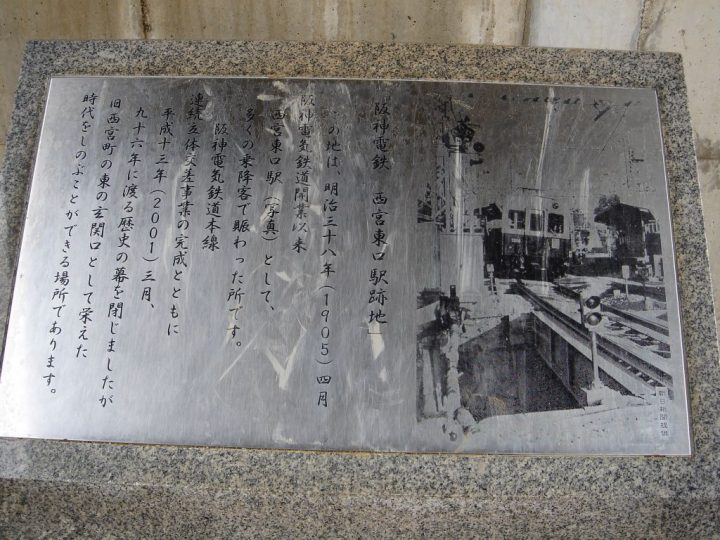 阪神電鉄 西宮東口駅跡地
この地は、明治三十八年(1905)四月
阪神電気鉄道開業以来
西宮東口駅(写真)として、
多くの乗降客で賑わった所です。
阪神電気鉄道本線
連続立体交差事業の完成とともに
平成十三年(2001)三月、
九十六年に渡る歴史の幕を閉じましたが
旧西宮町の東の玄関口として栄えた
時代をしのぶことができる場所であります。
朝日新聞提供